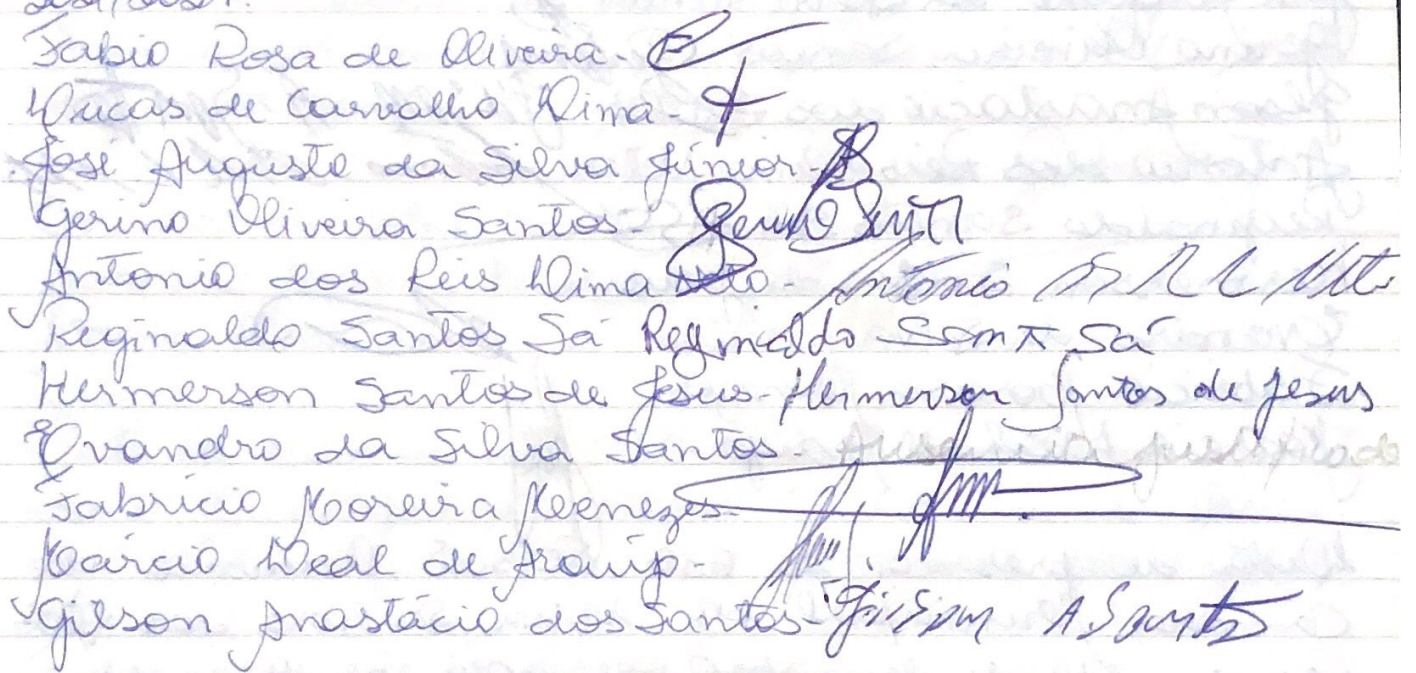 Fabio Rosa de Oliveira-
Lucas de Carvalho Lima-
José Augusto da Silva Júnior-
Gerino Oliveira Santos-
Antonio dos Reis Lima Neto- Antonio
Reginaldo Santos Sá Reginaldo Sá
Hermerson Santos de Jesus- Hermerson Santos de Jesus
Evandro da Silva Santos-
Fabrício Moreira Menezes-
Márcio Leal de Araújo-
Gilson Anastácio dos Santos- Gilson A Santos